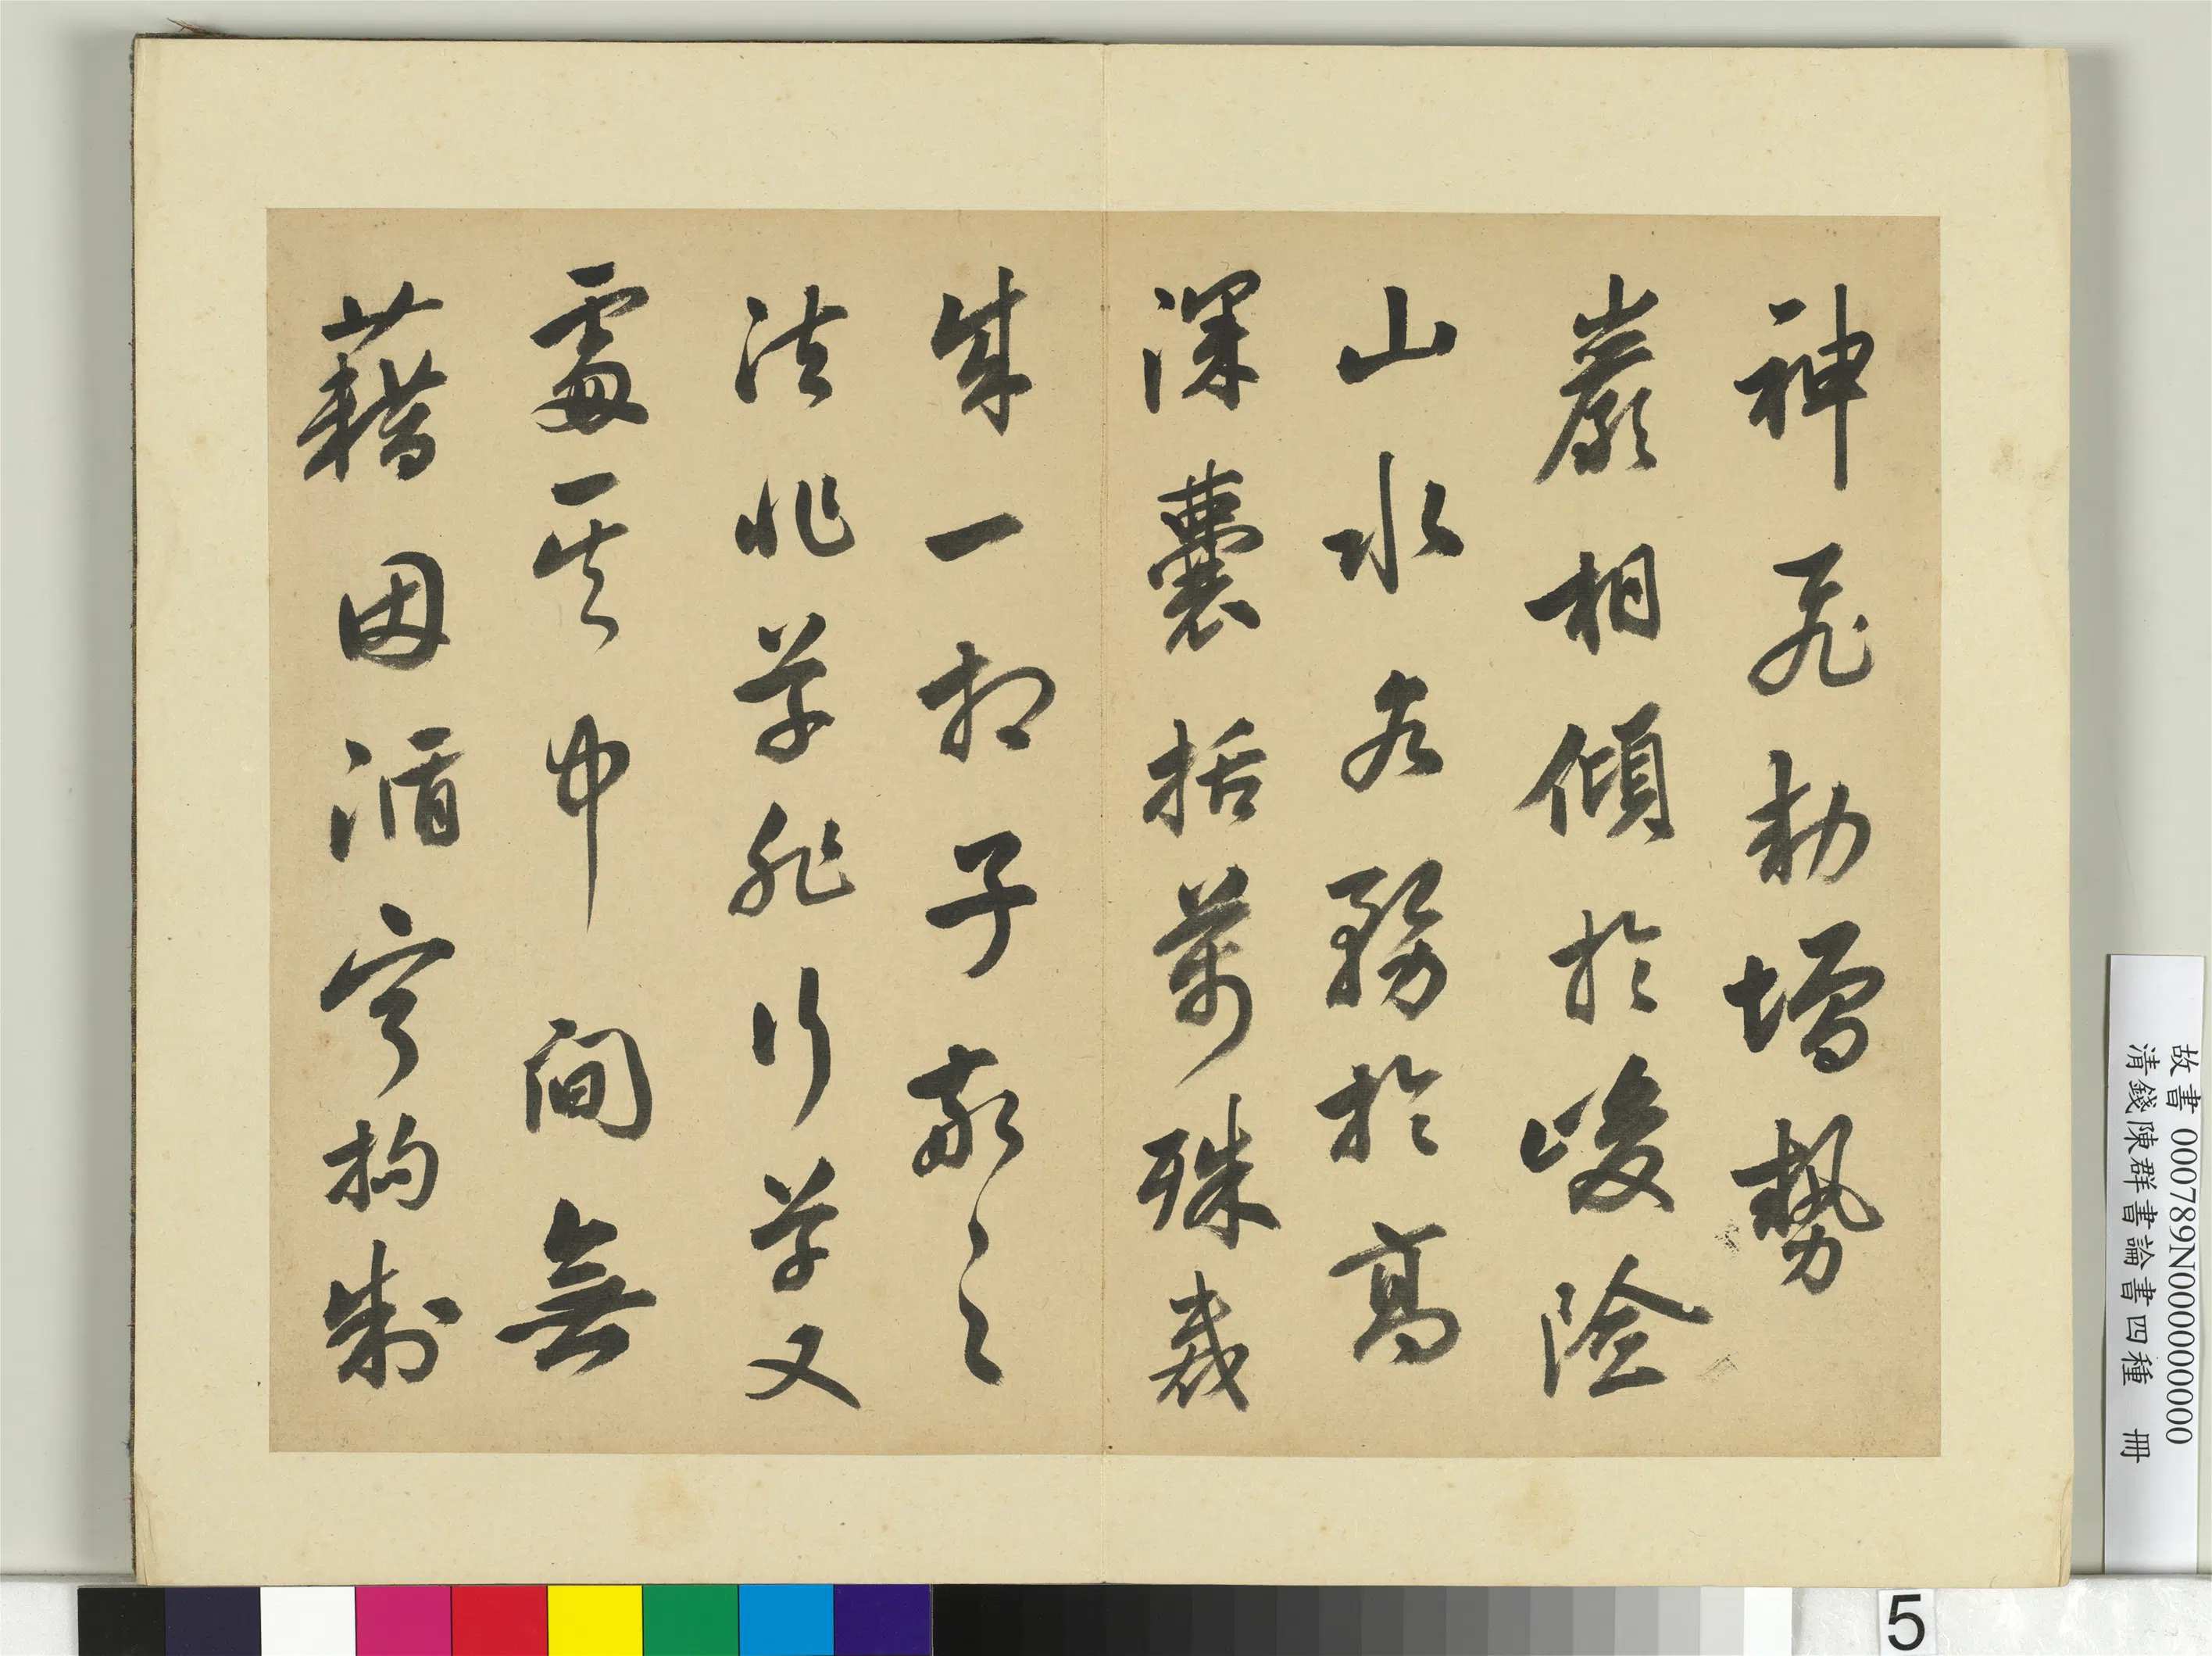 神飛動增勢
巖相傾於峻險
山水各務於高
深囊括萬殊裁
成一相子敬之
法非草非行草又
處其中間無
藉因循寧拘制
故書 000789N000000000
清錢陳群書論書四種 冊
5